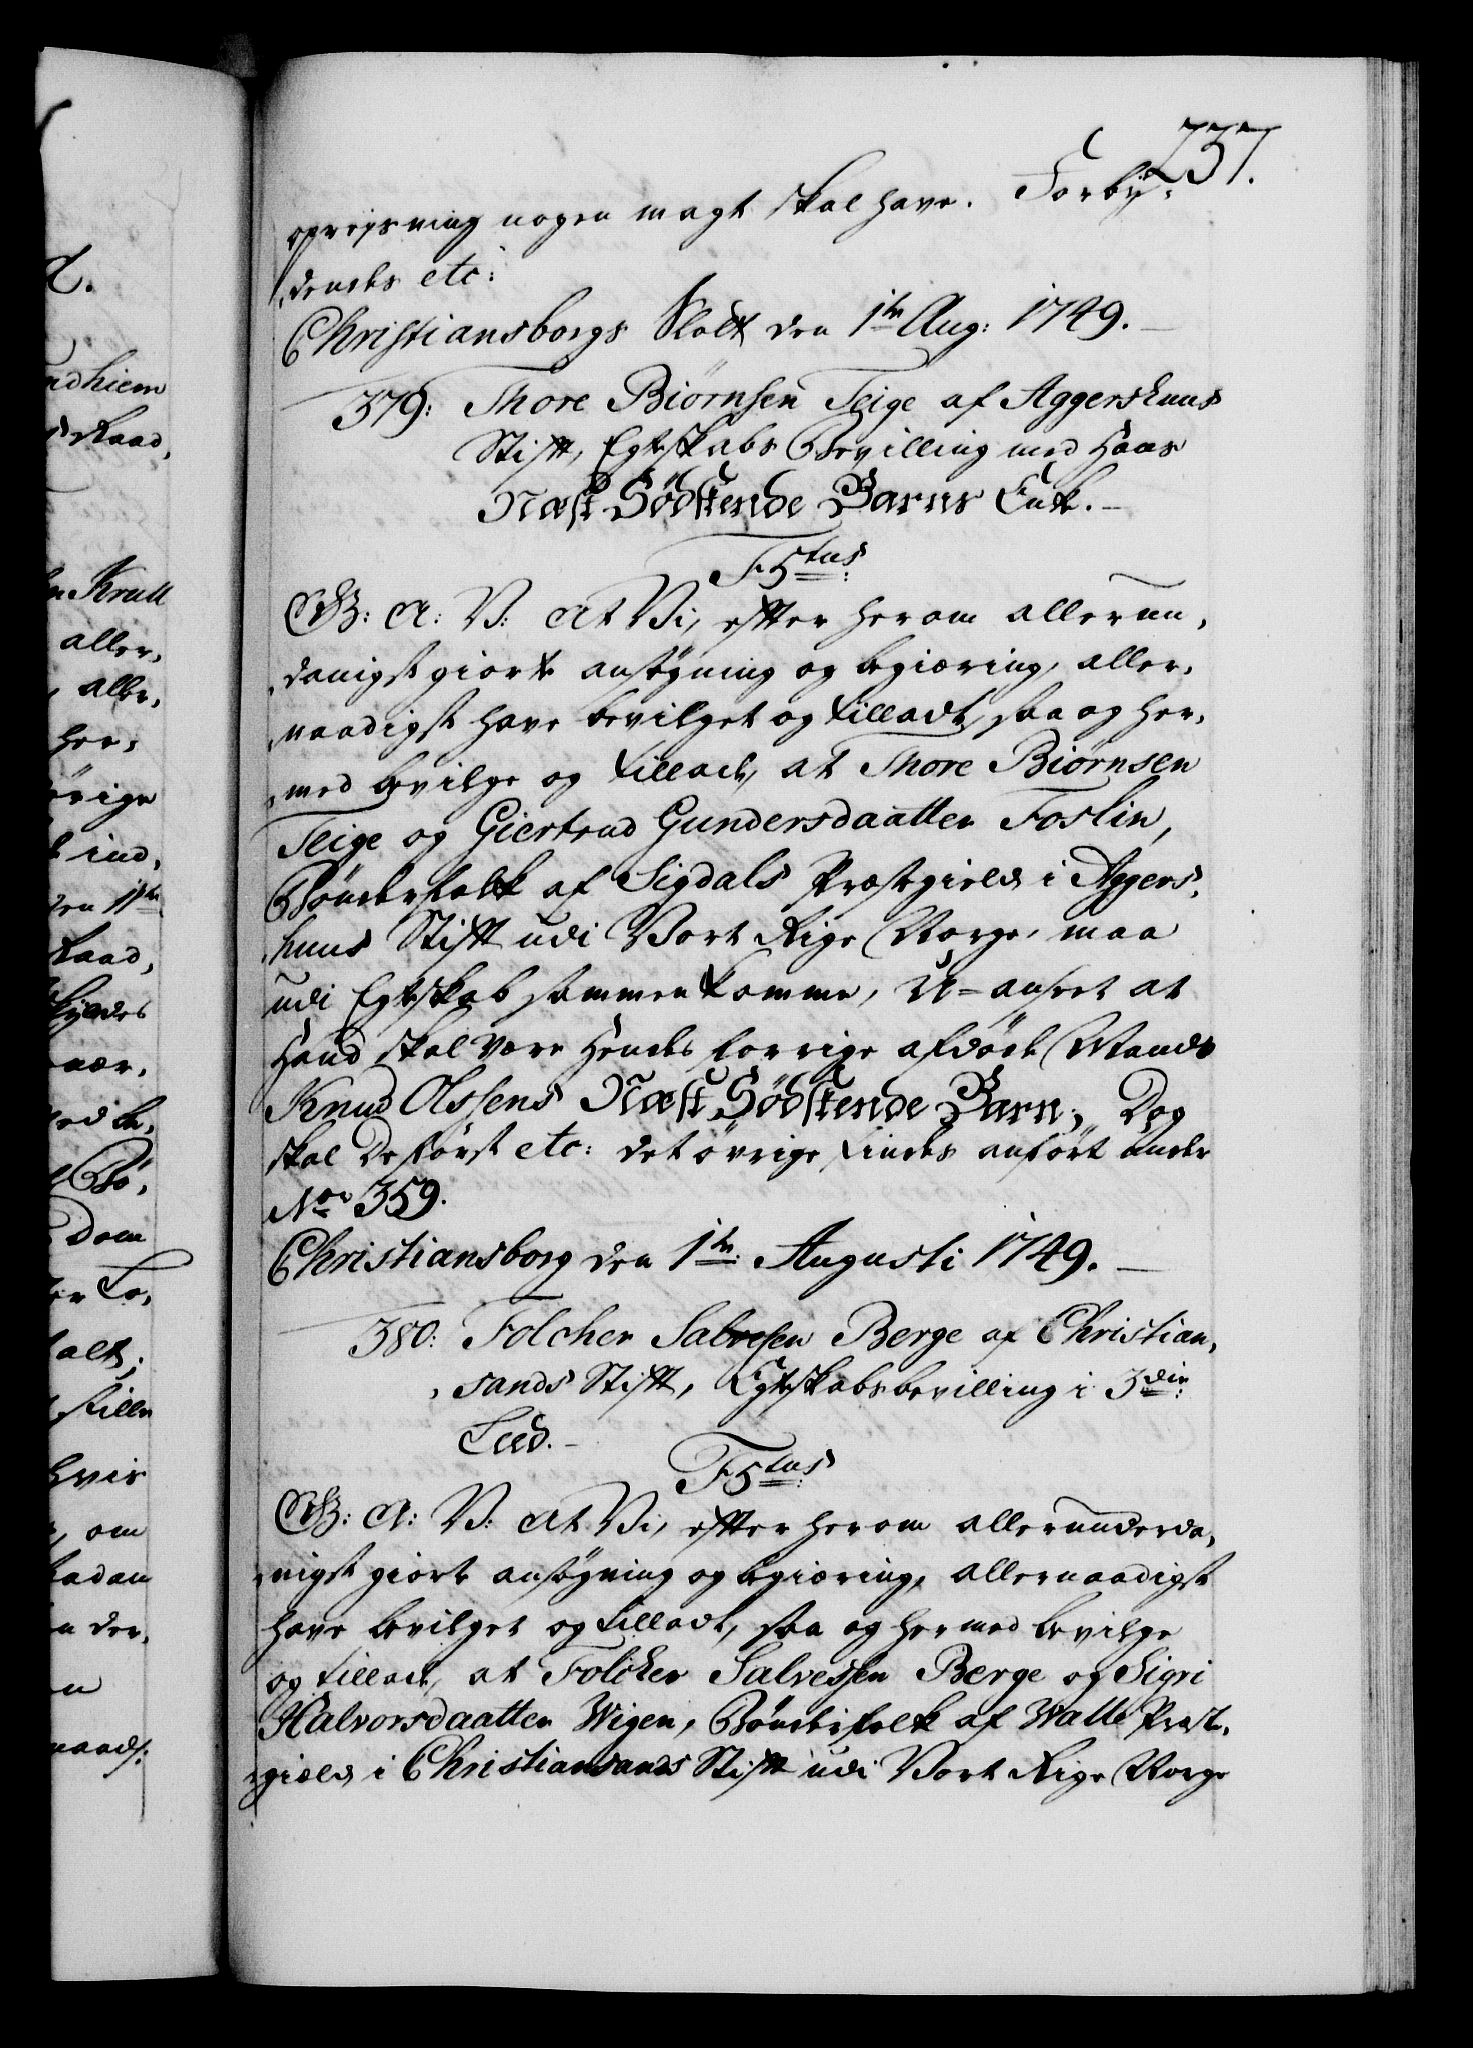 737.
opreysning nogen magt skal have. Forby,
,dendes etc:
Christiansborgs Slott den 1te Aug: 1749.
379: Thore Biørnsen Teige af Aggershuus
Stift, Egteskabs Bevilling med Hans
Næst Södskende Barns Enke.
F5tus
G: A: V: At Vi, efter herom allerun,
,danigst giorte ansøgning og begiæring, aller,
,naadigst have bevilget og tilladt, saa og her,
,med bevilge og tillade, at Thore Biørnsen
Teige og Giertrud Gundersdaatter Foslin,
Bönderfolk af Sigdals Præstegield i Aggers,
,huus Stift udi Vort Rige Norge, maa
udi Egteskab sammenkomme, U=anseet at
Hand skal være Hendes forrige afdöde Mands
Knud Olssens Næst Södskende Barn; Dog
skal De først etc: det øvrige findes anfört under
No 359.
Christiansborg den 1te Augusti 1749.
380: Folcher Salvesen Berge af Christian,
,sands Stift, Egteskabsbevilling i 3die
Leed.
F5tus
G: A: V: At Vi, efter herom allerunderda,
,nigst giorte ansøgning og begiæring, allernaadigst
have bevilget og tilladt, saa og hermed bevilge
og tillade, at Folcher Salvessen Berge og Sigri
Halvorsdaatter Wigen, Bönderfolk af Walle Præste,
,gield i Christiansands Stift udi Vort Rige Norge